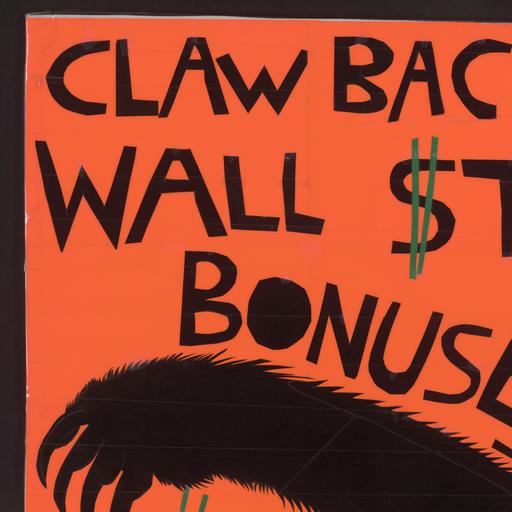 CLAW BAC
WALL $T
BONUSE